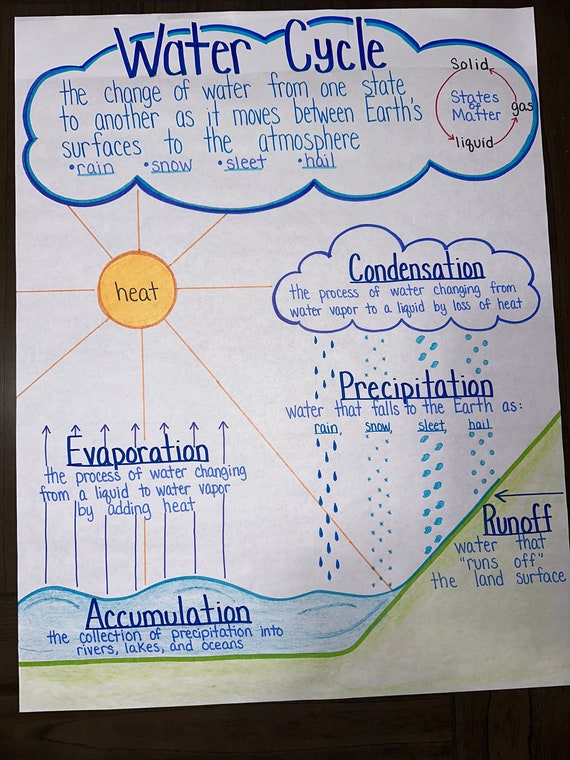 Water Cycle
the change of water from one state
to another as it moves between Earth's
surfaces to the atmosphere
•rain •snow •sleet •hail
Solid
States
of
Matter
gas
liquid
heat
Condensation
the process of water changing from
water vapor to a liquid by loss of heat
Precipitation
water that falls to the Earth as:
rain, snow, sleet, hail
Evaporation
the process of water changing
from a liquid to water vapor
by adding heat
Runoff
water that
"runs off"
the land surface
Accumulation
the collection of precipitation into
rivers, lakes, and oceans